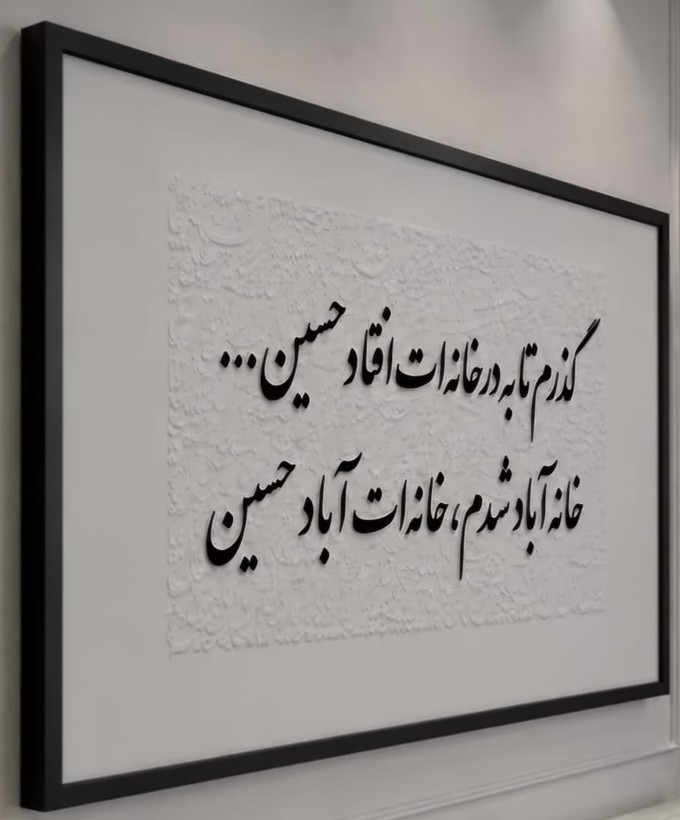 گذرم تا به در خانه ات افتاد حسین...
خانه آباد شدم، خانه ات آباد حسین